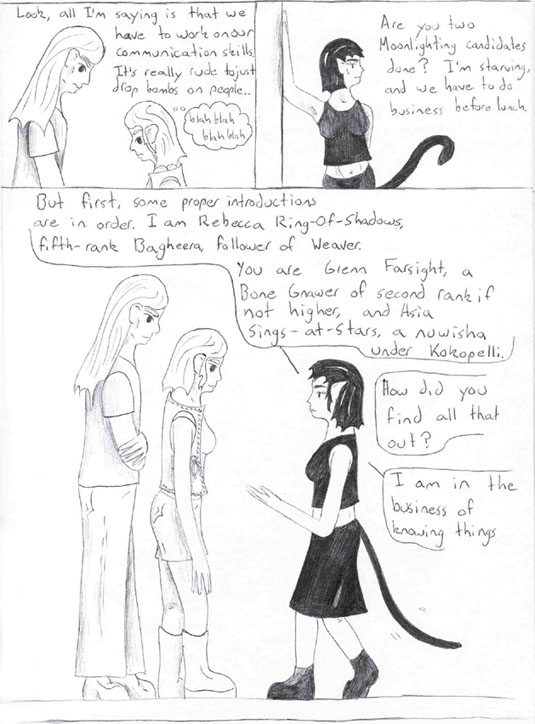 Look, all I'm saying is that we
have to work on our
communication skills.
It's really rude to just
drop bombs on people..
blah blah
blah blah
Are you two
Moonlighting candidates
done? I'm starving,
and we have to do
business before lunch.
But first, some proper introductions
are in order. I am Rebecca Ring-Of-Shadows,
fifth-rank Bagheera, follower of Weaver.
You are Glenn Farsight, a
Bone Gnawer of second rank if
not higher, and Asia
Sings-at-Stars, a nuwisha
under Kokopelli.
How did you
find all that
out?
I am in the
business of
knowing things